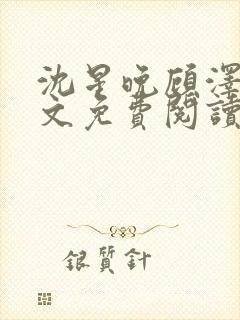 沈星晚顾澤
文免費閱讀
銀質針